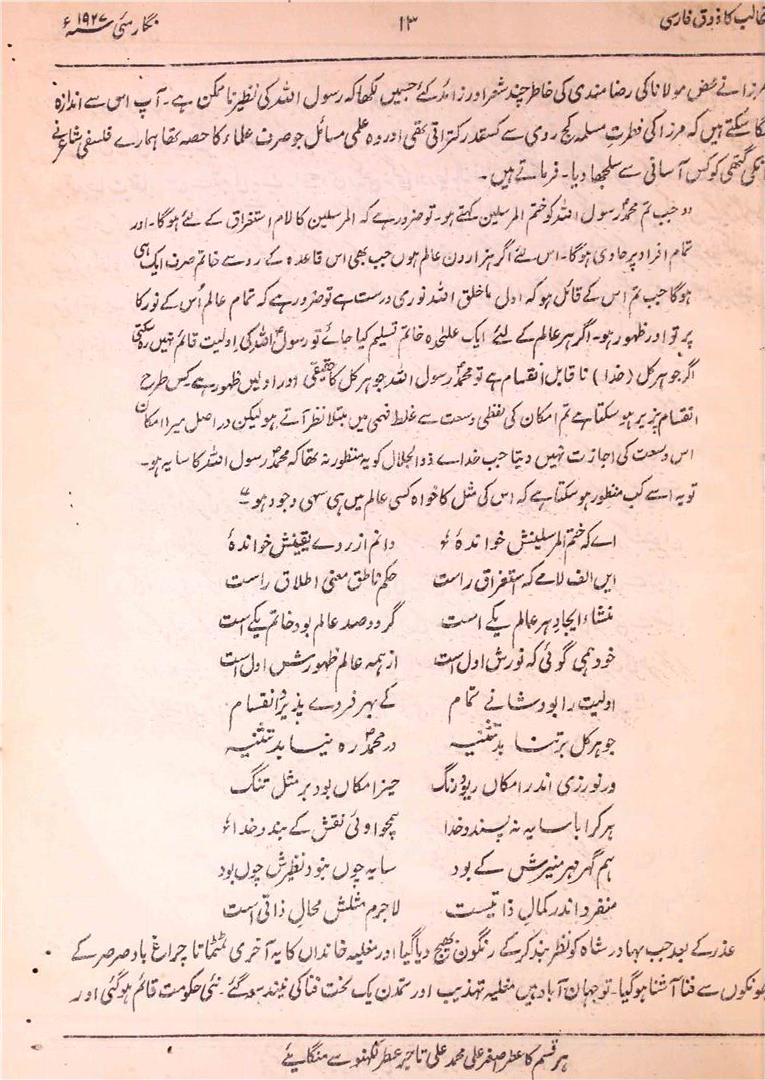 نگار مئی ۱۹۲۷ء ۱۳ غالب کا ذوق فارسی
مرزا نے محض مولانا کی رضامندی کی خاطر چند شعر اور زائد کئے جسمیں لکھا کہ رسول اللہ کی نظیر نا ممکن ہے۔ آپ اس سے اندازہ
لگا سکتے ہیں کہ مرزا کی فطرتِ مسلمہ کج روی سے کسقدر کتراتی تھی اور وہ علمی مسائل جو صرف علماء کا حصہ تھا ہمارے فلسفی شاعر نے
انکی گتھی کو کس آسانی سے سلجھا دیا۔ فرماتے ہیں۔
"جب تم محمدؐ رسول اللہ کو ختم المرسلین کہتے ہو۔ تو ضرور ہے کہ المرسلین کا لام استغراق کے لئے ہوگا۔ اور
تمام افراد پر حاوی ہوگا۔ اس لئے اگر ہزارون عالم ہوں جب بھی اس قاعدہ کے رو سے خاتم صرف ایک ہی
ہوگا جب تم اس کے قائل ہو کہ اول ما خلق اللہ نوری درست ہے تو ضرور ہے کہ تمام عالم اُس کے نور کا
پر تو اور ظہور ہو۔ اگر ہر عالم کے لئے ایک علٰحدہ خاتم تسلیم کیا جائے تو رسول اللہؐ کی اولیت قائم نہیں رہ سکتی
اگر جوہر کل (خدا) نا قابل انقسام ہے تو محمدؐ رسول اللہ جو ہر کل کا حقیقی اور اولیں ظہور ہے کیس طرح
انقسام پزیر ہو سکتا ہے تم امکان کی لفظی وسعت سے غلط فہمی میں مبتلا نظر آتے ہو لیکن در اصل میرا امکان
اس وسعت کی اجازت نہیں دیتا جب خداے ذوالجلال کو یہ منظور نہ تھا کہ محمدؐ رسول اللہ کا سایہ ہو۔
تو یہ اسے کب منظور ہو سکتا ہے کہ اس کی مثل کا خواہ کسی عالم میں ہی سہی وجود ہو"
اے کہ ختم المرسلینش خواندۂ دانم از روے یقینش خواندۂ
ایں الف لامے کہ استغراق راست حکم ناطق معنیٔ اطلاق راست
منشاء ایجاد ہر عالم یکے است گر دو صد عالم بود خاتم یکے است
خود ہمی گوئی کہ نورش اول است از ہمہ عالم ظہورش اول است
اولیت را بود شانے تمام کے بہر فردے پذیرد انقسام
جوہر کل بر نتابد تثنیہ در محمدؐ رہ نیابد تثنیہ
ور نورزی اندر امکاں ریو و رنگ حیز امکاں بود بر مثل تنگ
ہر کرا با سایہ نہ پسندد خدا ہمچو اوئی نقش کے بندد خدا
ہم گہر مہر منیرش کے بود سایہ چوں نبود نظیرش چوں بود
منفرد اندر کمالِ ذاتیست لاجرم مثلش محالِ ذاتی است
غدر کے بعد جب بہادر شاہ کو نظر بند کر کے رنگون بھیج دیا گیا اور مغلیہ خاندان کا یہ آخری ٹمٹماتا چراغ باد صرصر کے
جھونکوں سے فنا آشنا ہو گیا۔ تو جہان آباد میں مغلیہ تہذیب اور تمدن یک لخت فنا کی نیند سو گئے۔ نئی حکومت قائم ہو گئی اور
ہر قسم کا عطر اصغر علی محمد علی تاجر عطر لکھنو سے منگائیے